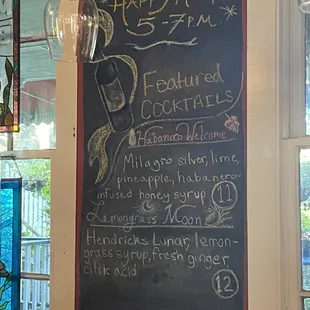 Happy
5-7 P.M.
Featured
COCKTAILS
Habanero Welcome
Milagro silver, lime,
pineapple, habanero-
infused honey syrup 11
Lemongrass Moon
Hendricks Lunar, lemon-
grass syrup, fresh ginger,
citrik azid 12